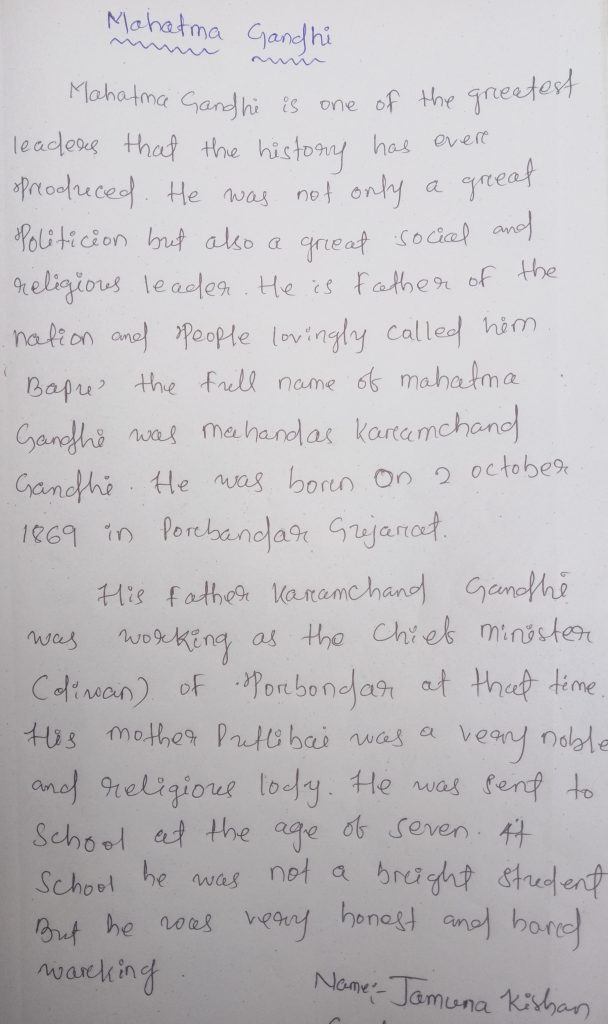 Mahatma Gandhi
Mahatma Gandhi is one of the greatest
leaders that the history has ever
produced. He was not only a great
Politicion but also a great social and
religious leader. He is Father of the
nation and People lovingly called him
Bapu' the full name of mahatma
Gandhi was mahandas Karamchand
Gandhi. He was born On 2 october
1869 in Porbandar Gujarat.
His father Karamchand Gandhi
was working as the Chief minister
(diwan) of Porbondar at that time.
His mother Putlibai was a very noble
and religious lody. He was sent to
School at the age of seven. At
School he was not a bright student
But he was very honest and hard
warking
Name:- Jamuna Kishan